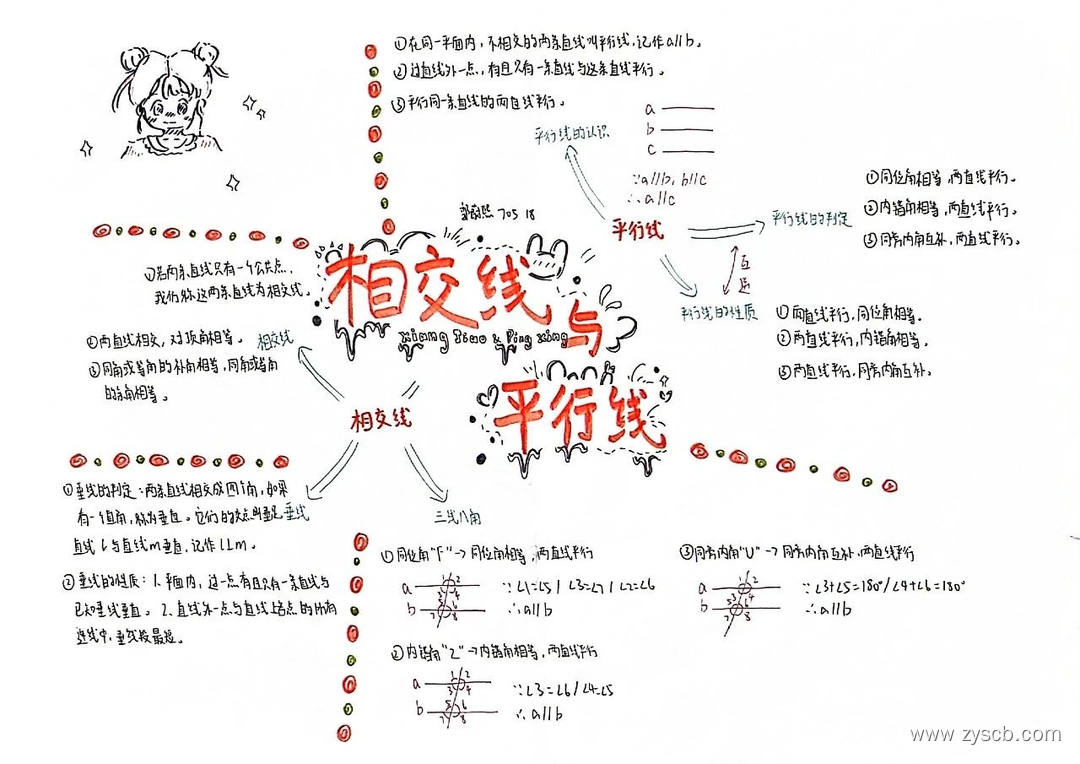 ①在同一平面内，不相交的两条直线叫平行线，记作a∥b。
②过直线外一点，有且只有一条直线与这条直线平行。
③平行同一条直线的两直线平行。
平行线的认识
a
b
c
∵a∥b，b∥c
∴a∥c
平行线
平行线的判定
①同位角相等，两直线平行。
②内错角相等，两直线平行。
③同旁内角互补，两直线平行。
互逆
平行线的性质
①两直线平行，同位角相等。
②两直线平行，内错角相等。
③两直线平行，同旁内角互补。
705 18
相交线
与
Xiang Jiao & Ping Xing
平行线
①若两条直线只有一个公共点，
我们称这两条直线为相交线。
②两直线相交，对顶角相等。
③同角或等角的补角相等，同角或等角
的余角相等。
相交线
相交线
垂线
①垂线的判定：两条直线相交成四个角，如果
有一个直角，称为垂直。它们的交点叫垂足
直线l与直线m垂直，记作l⊥m。
②垂线的性质：1.平面内，过一点有且只有一条直线与
已知垂线垂直。2.直线外一点与直线上各点的所有
连线中，垂线段最短。
三线八角
①同位角"F"→同位角相等，两直线平行
a
b
1 2
3 4
5 6
7 8
∵∠1=∠5/∠3=∠7/∠2=∠6
∴a∥b
②内错角"Z"→内错角相等，两直线平行
a
b
1 2
3 4
5 6
7 8
∵∠3=∠6/∠4=∠5
∴a∥b
③同旁内角"U"→同旁内角互补，两直线平行
a
b
1 2
3 4
5 6
7 8
∵∠3+∠5=180°/∠4+∠6=180°
∴a∥b
www.zyscb.com